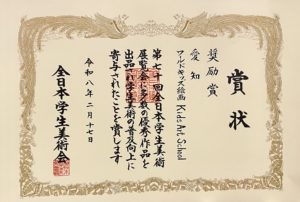 賞状
奨励賞
愛知
ワールドキッズ絵画 Kids Art School
第七十回全日本学生美術
展覧会に多数の優秀作品を
出品され学生美術の普及向上に
寄与されたことを賞します
令和八年二月十七日
全日本学生美術会